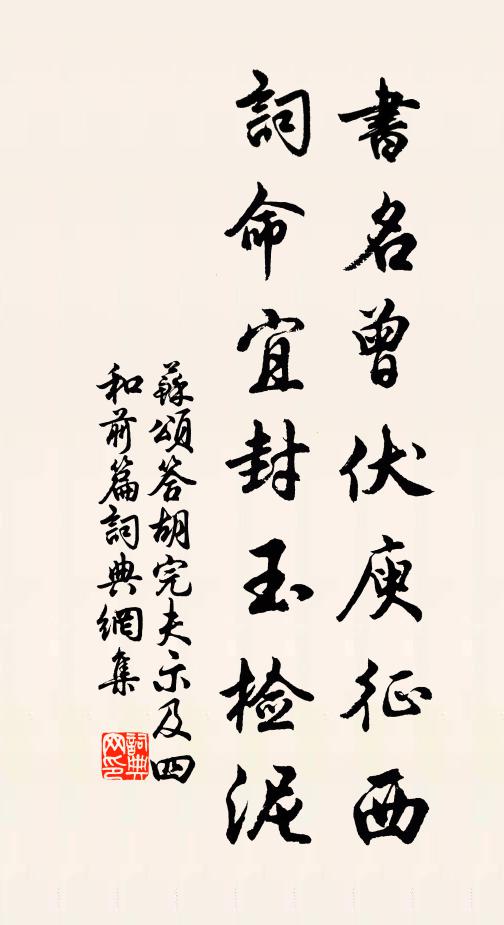 書名曾伏庾征西
詞命宜封玉檢泥
蘇頌答胡完夫示及四
和前篇詞典網集
詞典网印